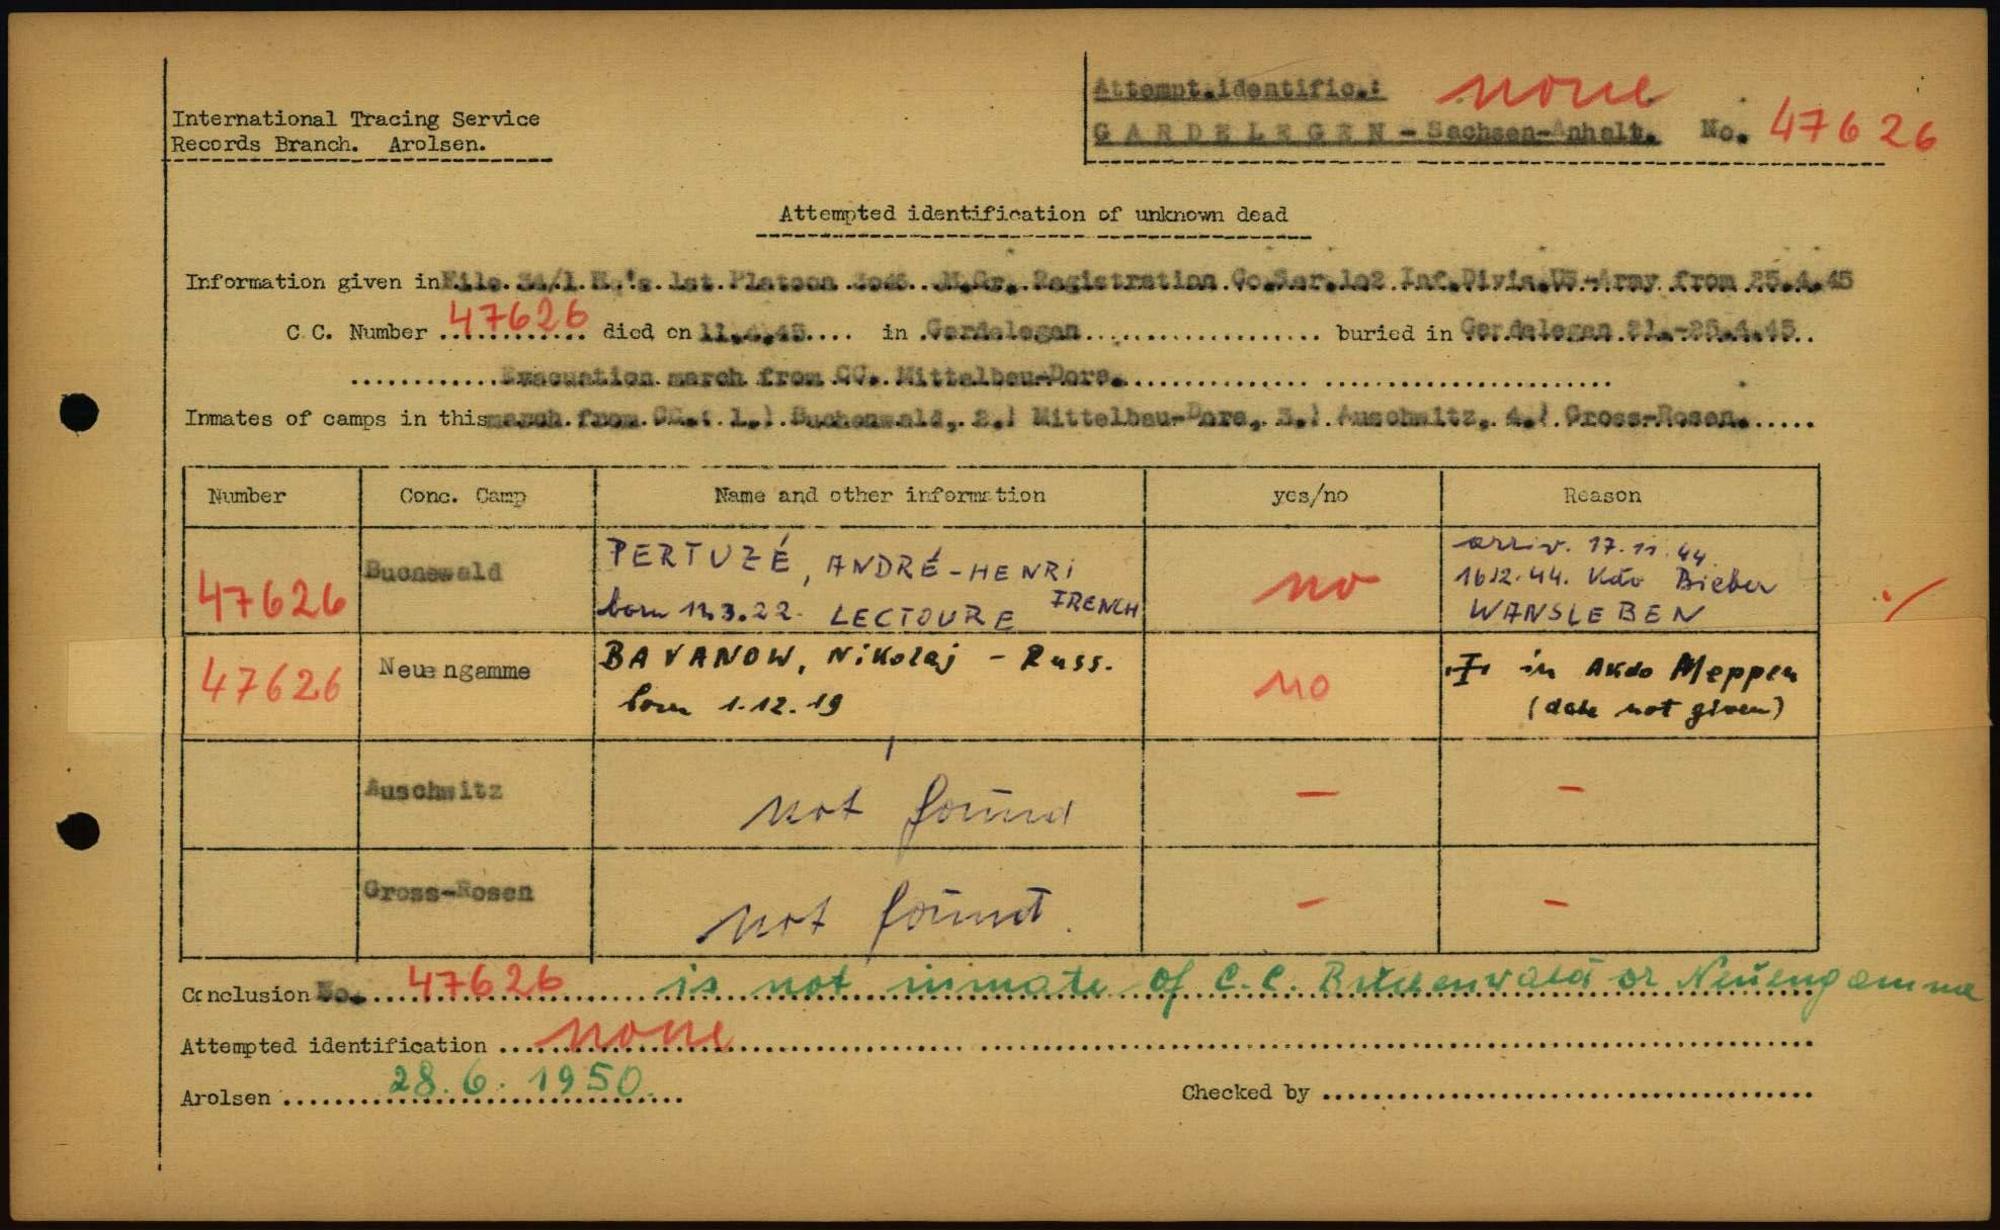 International Tracing Service
Records Branch. Arolsen.
Attempt.identific.: none
GARDELEGEN - Sachsen-Anhalt. No. 47626
Attempted identification of unknown dead
Information given in File. 1st. Platoon Registration Co. Inf.Divis.US-Army from 25.4.45
C.C. Number 47626 died on 11.4.45.... in .Gardelegen.................... buried in Gardelegen 21.-25.4.45..
............Evacuation march from CC. Mittelbau-Dora.............. ......................
Inmates of camps in this march from CC.: 1.) Buchenwald, 2.) Mittelbau-Dora, 3.) Auschwitz, 4.) Gross-Rosen......
Number Conc. Camp Name and other information yes/no Reason
47626 Buchewald PERTUZÉ, ANDRÉ-HENRI no arriv. 17.11.44
born 12.3.22. LECTOURE FRENCH 16.12.44. Kdo Bieber
WANSLEBEN
47626 Neuengamme BAVANOW, Nikolaj - Russ. no in AKdo Meppen
born 1.12.19 (date not given)
Auschwitz not found — —
Gross-Rosen not found. — —
Conclusion No. 47626 is not inmate of C.C. Buchenwald or Neuengamme
Attempted identification none
Arolsen 28.6.1950.
Checked by ......................................